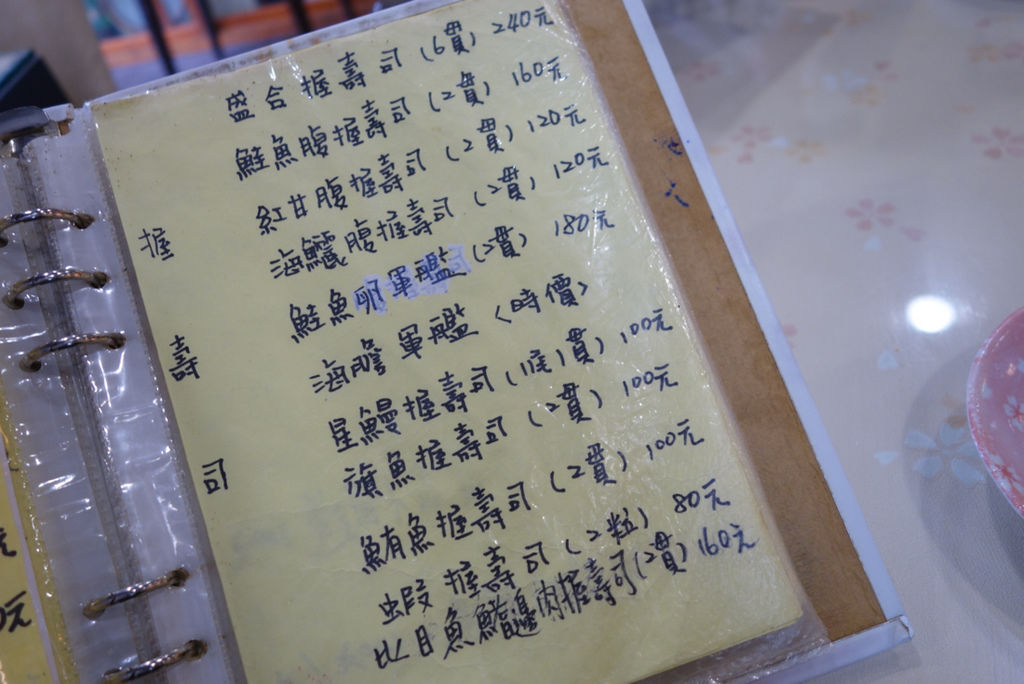 握壽司
盛合握壽司(6貫) 240元
鮭魚腹握壽司(2貫) 160元
紅甘腹握壽司(2貫) 120元
海鱺腹握壽司(2貫) 120元
鮭魚卵軍艦(2貫) 180元
海膽軍艦〈時價〉
星鰻握壽司(1尾1貫) 100元
旗魚握壽司(2貫) 100元
鮪魚握壽司(2貫) 100元
蝦握壽司(2粒) 80元
比目魚鰭邊肉握壽司(2貫) 160元
0元